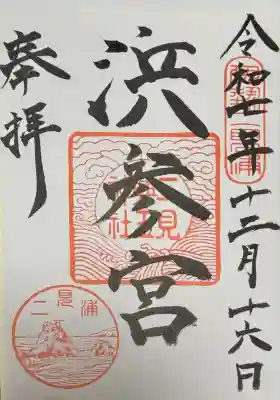 令和七年十二月十六日
浜参宮
奉拝
二見浦